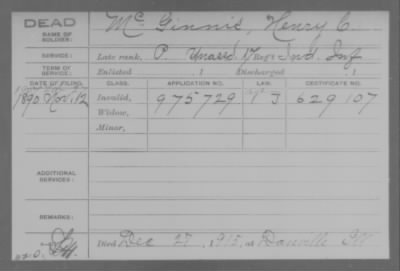 DEAD
NAME OF SOLDIER:
Mc Ginnis, Henry C.
SERVICE:
Late rank, P. Unassd. 17 Reg't Ind. Inf
TERM OF SERVICE:
Enlisted , 1 Discharged , 1
DATE OF FILING. CLASS. APPLICATION NO. LAW. CERTIFICATE NO.
1890 Nov. 12 Invalid, 975729 J 629107
Widow,
Minor,
ADDITIONAL SERVICES:
REMARKS:
Died Dec 27, 1915, at Danville Ill